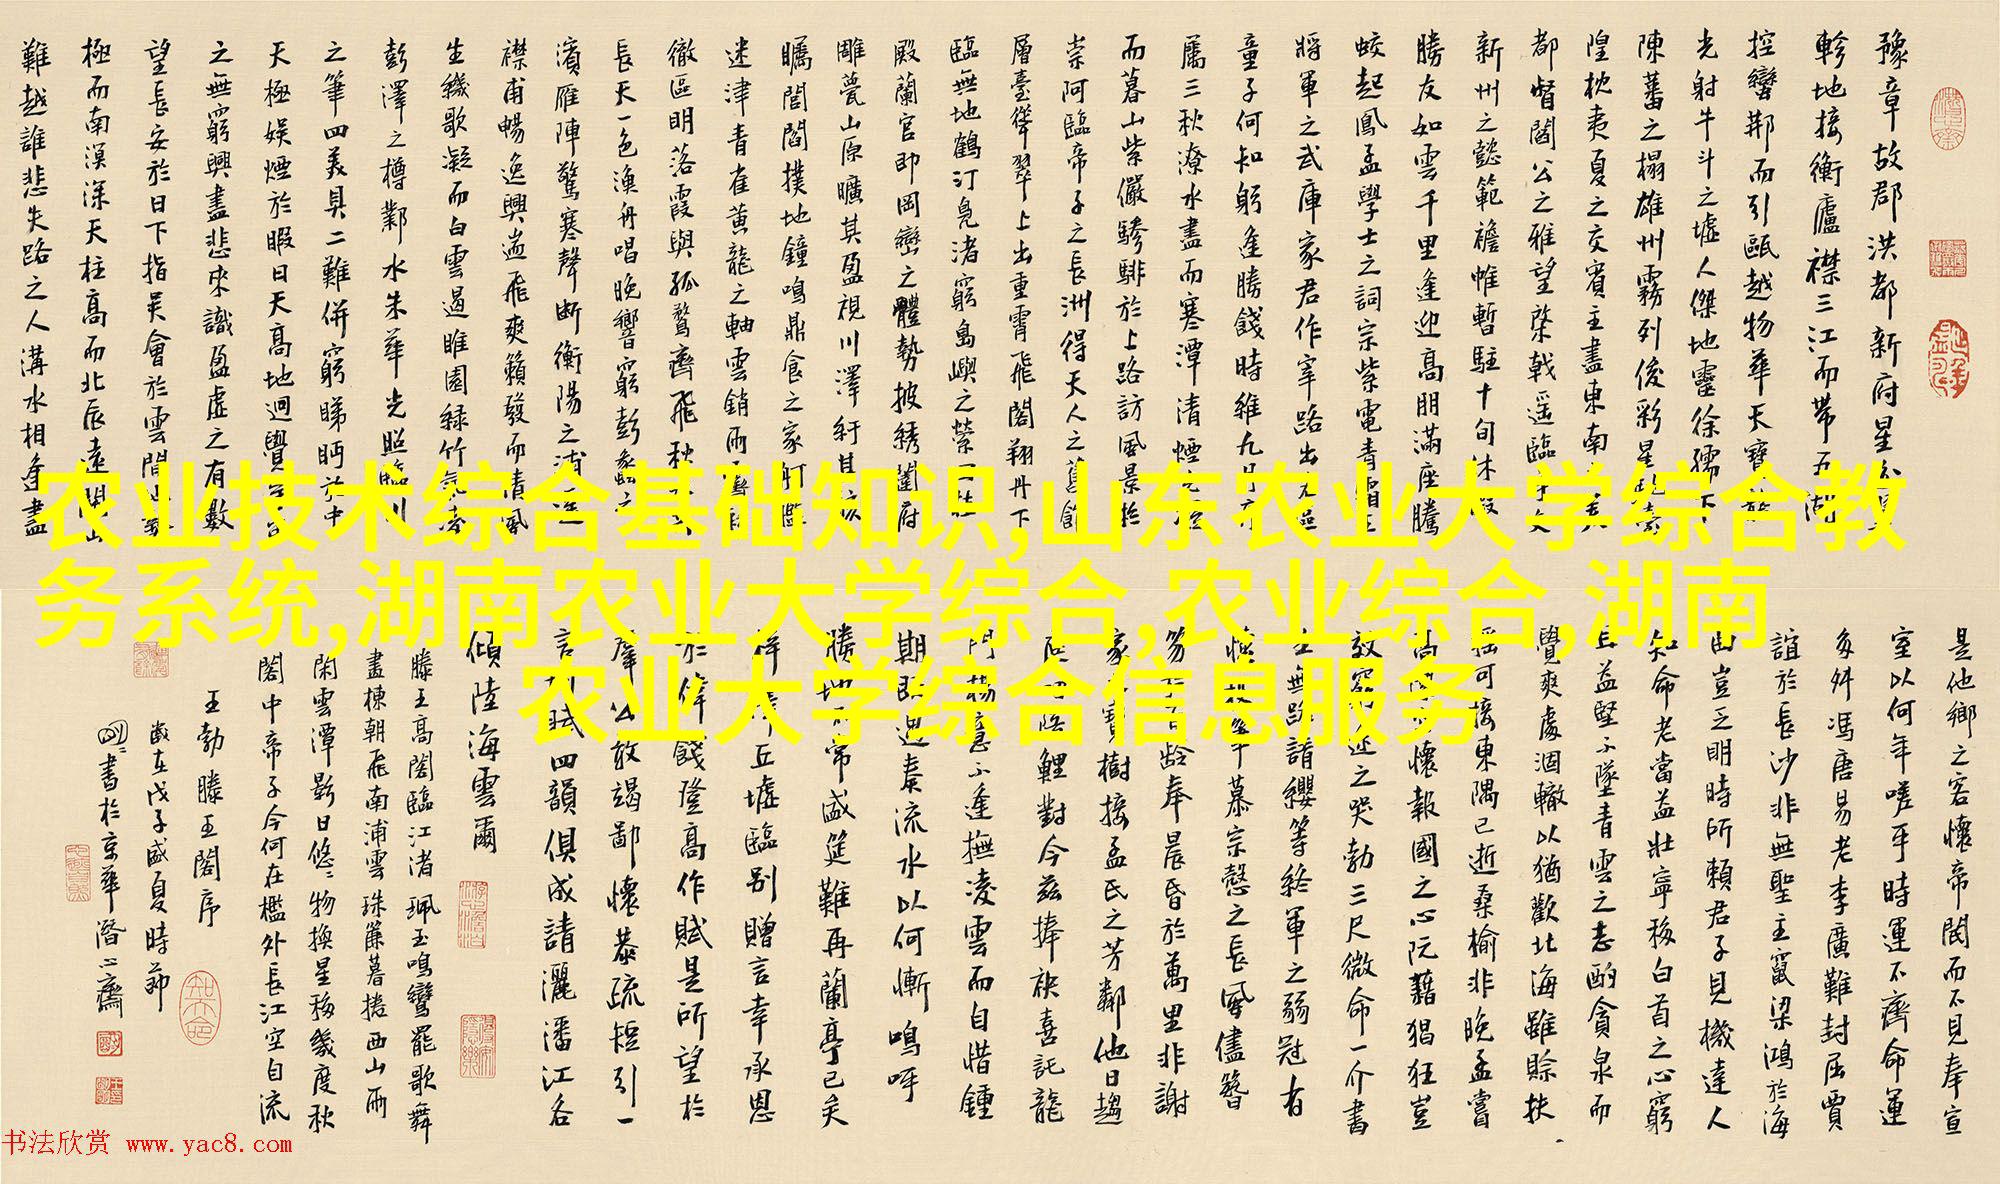 豫章故郡洪都新府星分翼
軫地接衡廬襟三江而帶五湖
控蠻荊而引甌越物華天寶
光射牛斗之墟人傑地靈徐孺下
陳蕃之榻雄州霧列俊彩星馳
隍枕夷夏之交賓主盡東南美
都督閻公之雅望棨戟遥臨宇文
新州之懿範襜帷暫駐十旬休暇
勝友如雲千里逢迎高朋滿座騰
蛟起鳳孟學士之詞宗紫電青霜王
將軍之武庫家君作宰路出區
童子何知躬逢勝餞時維九月序
屬三秋潦水盡而寒潭清煙
而暮山紫儼驂騑於上路訪風景於
崇阿臨帝子之長洲得天人之舊館
層臺聳翠上出重霄飛閣翔丹下
臨無地鶴汀鳧渚窮島嶼之縈
殿蘭宫即岡巒之體勢披綉闥俯
雕甍山原曠其盈視川澤紆其
矚閭閻撲地鐘鳴鼎食之家舸艦
迷津青雀黄龍之軸雲銷雨
徹區明落霞與孤鶩齊飛秋
長天一色漁舟唱晚響窮彭蠡之
濱雁陣驚寒聲斷衡陽之浦遥
襟甫暢逸興遄飛爽籟發而清風
生纖歌凝而白雲遏睢園緑竹氣凌
彭澤之樽鄴水朱華光照臨川
之筆四美具二難併窮睇眄於中
天極娱煙於暇日天高地迥覺
之無窮興盡悲來識盈虚之有數
望長安於日下指吴會於雲間
極而南溟深天柱高而北辰遠關山
難越誰悲失路之人溝水相逢盡
农业技术综合基础知识,山东农业大学综合教
务系统,湖南农业大学综合,农业综合,湖南
农业大学综合信息服务
是他鄉之客懷帝閽而不見奉宣
室以何年嗟乎時運不齊命運
多舛馮唐易老李廣難封屈賈
誼於長沙非無聖主竄梁鴻於海
曲豈乏明時所賴君子見機達人
知命老當益壯寧移白首之心窮
且益堅不墜青雲之志酌貪泉而
覺爽處涸轍以猶歡北海雖賒扶
摇可接東隅已逝桑榆非晚孟嘗
高懷報國之心阮藉猖狂豈
效窮途之哭勃三尺微命一介書
生無路請纓等終軍之弱冠有
懷投筆慕宗慤之長風儘簪
笏於齡奉晨昏於萬里非謝
家寶樹接孟氏之芳鄰他日趨
庭鯉對今兹捧袂喜託龍
門楊意不逢撫凌雲而自惜鍾
期既遇奏流水以何慚嗚呼
勝地常盛筵難再蘭亭已矣
梓澤丘墟臨别贈言幸承恩
於偉餞登高作賦是所望於
羣公敢竭鄙懷恭疏短引一
言賦四韻俱成請灑潘江各
傾陸海雲爾
滕王高閣臨江渚珮玉鳴鸞罷歌舞
畫棟朝飛南浦雲珠簾暮捲西山雨
閑雲潭影日悠〻物换星移幾度秋
閣中帝子今何在檻外長江空自流
王勃滕王閣序
歲在戊子盛夏時節
書於京華潛心齋
书法欣赏 www.yac8.com